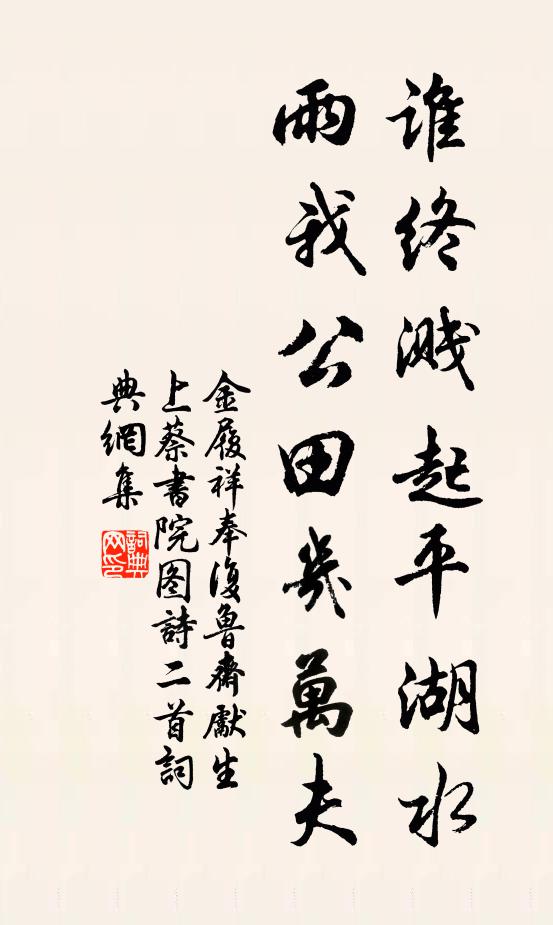 谁终溅起平湖水
雨我公田幾萬夫
金履祥奉復魯齋獻生
上蔡書院图詩二首詞
典網集
詞典
网印